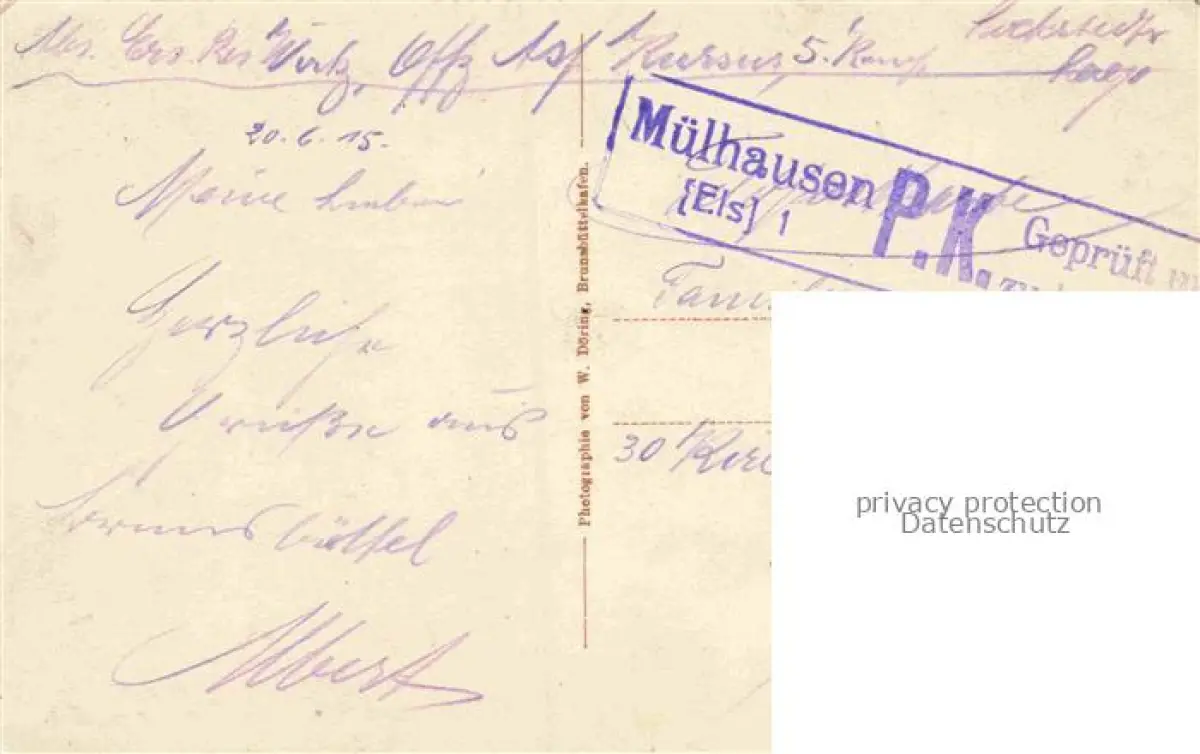 Abs. Ers. Res. Wirtz, Offz Asp Kursus 5. Komp. Lockstedter
Lager
20.6.15.
Meine Lieben
Herzliche
Grüße aus
Brunsbüttel
Albert
Photographie von W. Döring, Brunsbüttelhafen.
Mülhausen
[Els] 1
P.K.
Geprüft
Famil
30
privacy protection
Datenschutz